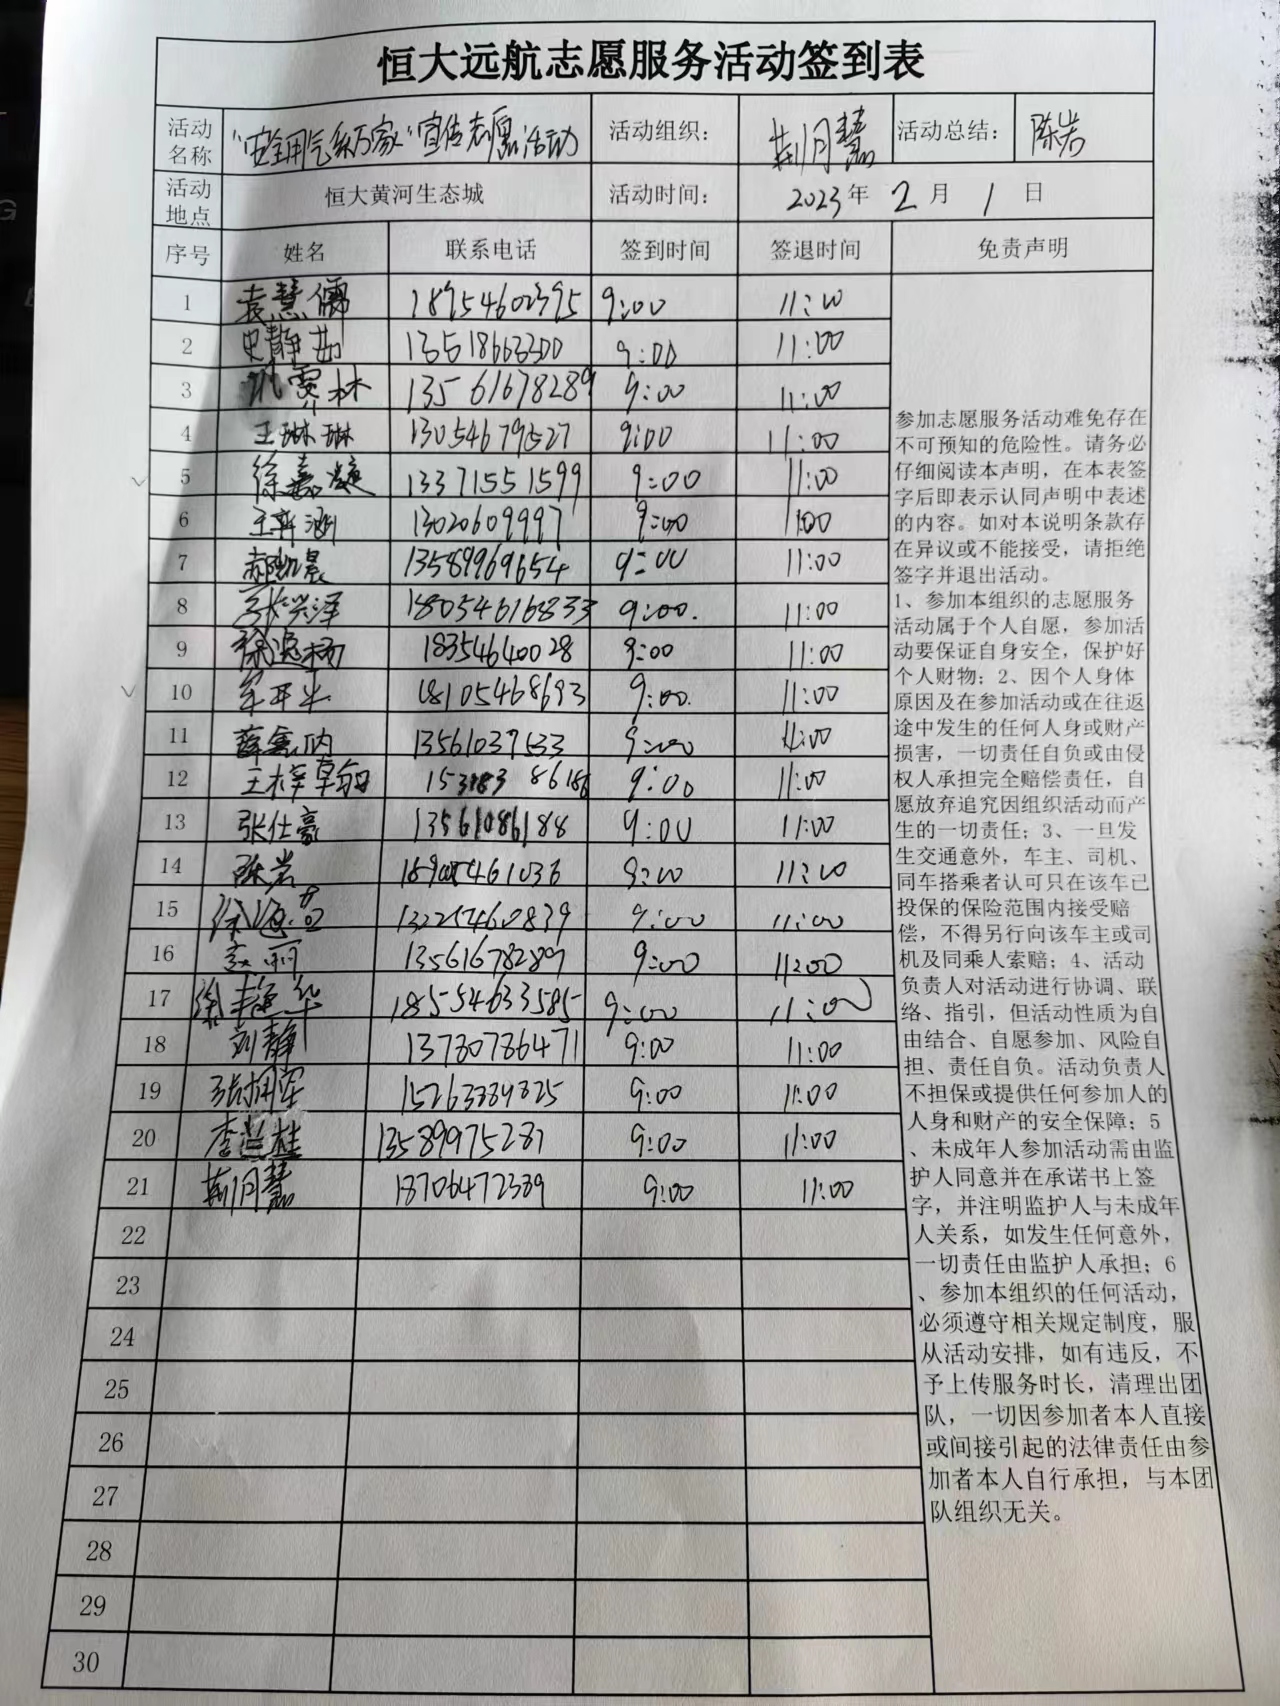 恒大远航志愿服务活动签到表
活动名称 "安全用气系万家"宣传志愿活动 活动组织： 荆月慧 活动总结： 陈岩
活动地点 恒大黄河生态城 活动时间： 2023年 2月 1日
序号 姓名 联系电话 签到时间 签退时间 免责声明
1 袁慧儒 18954602395 9:00 11:00
2 史静茹 13518663300 9:00 11:00
3 13561678289 9:00 11:00
4 王琳琳 13054679527 9:00 11:00
5 徐嘉凝 13371551599 9:00 11:00
6 王新涵 13020609997 9:00 11:00
7 郝凯晨 13589969654 9:00 11:00
8 张兴泽 9:00. 11:00
9 18354640028 9:00 11:00
10 18105468693 9:00. 11:00
11 13561037533 9:00 11:00
12 王梓卓 9:00 11:00
13 张仕豪 13561086188 9:00 11:00
14 陈岩 9:00 11:00
15 9:00 11:00
16 赵丽 13561678289 9:00 11:00
17 9:00 11:00
18 刘静 13780786471 9:00 11:00
19 张拥军 15263384825 9:00 11:00
20 李兰桂 13589975281 9:00 11:00
21 荆月慧 18706472389 9:00 11:00
22
23
24
25
26
27
28
29
30
参加志愿服务活动难免存在
不可预知的危险性。请务必
仔细阅读本声明，在本表签
字后即表示认同声明中表述
的内容。如对本说明条款存
在异议或不能接受，请拒绝
签字并退出活动。
1、参加本组织的志愿服务
活动属于个人自愿，参加活
动要保证自身安全，保护好
个人财物；2、因个人身体
原因及在参加活动或在往返
途中发生的任何人身或财产
损害，一切责任自负或由侵
权人承担完全赔偿责任，自
愿放弃追究因组织活动而产
生的一切责任；3、一旦发
生交通意外，车主、司机、
同车搭乘者认可只在该车已
投保的保险范围内接受赔
偿，不得另行向该车主或司
机及同乘人索赔；4、活动
负责人对活动进行协调、联
络、指引，但活动性质为自
由结合、自愿参加、风险自
担、责任自负。活动负责人
不担保或提供任何参加人的
人身和财产的安全保障；5
、未成年人参加活动需由监
护人同意并在承诺书上签
字，并注明监护人与未成年
人关系，如发生任何意外，
一切责任由监护人承担；6
、参加本组织的任何活动，
必须遵守相关规定制度，服
从活动安排，如有违反，不
予上传服务时长，清理出团
队，一切因参加者本人直接
或间接引起的法律责任由参
加者本人自行承担，与本团
队组织无关。